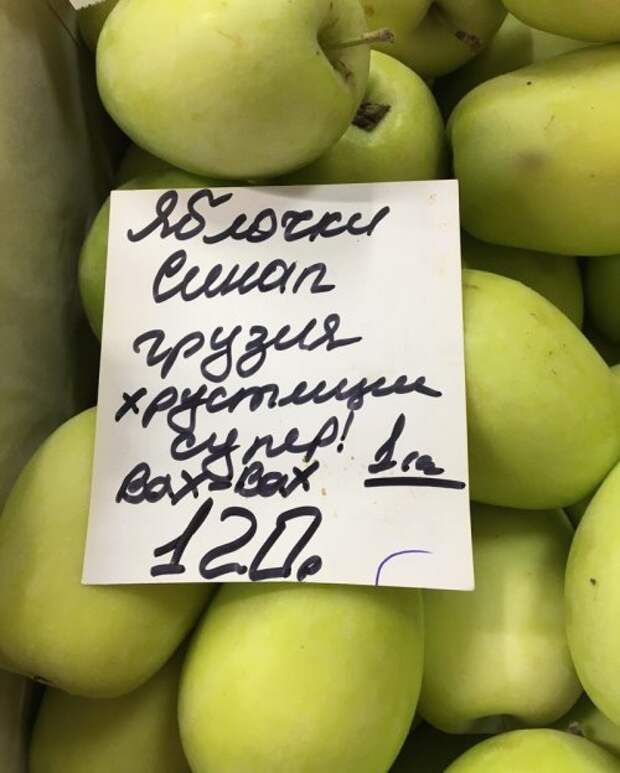 Яблочки
Синап
грузия
хрустящии
супер!
1кг
вах-вах
120р